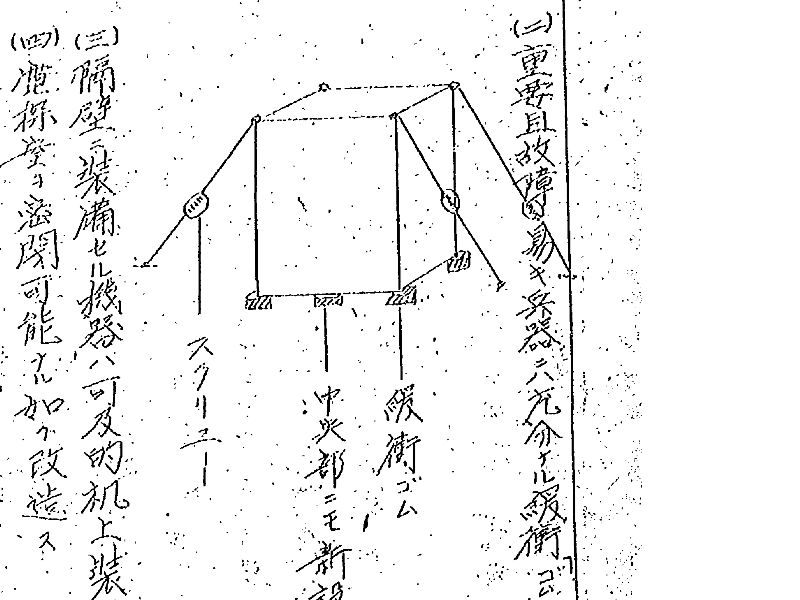 (二)重要且故障易キ兵器ニハ充分ナル緩衝ゴ
緩衝ゴム
中央部ニモ新設
スクリュー
(三)隔壁ニ装備セル機器ハ可及的机上装
(四)探室ヲ密閉可能ナル如ク改造ス